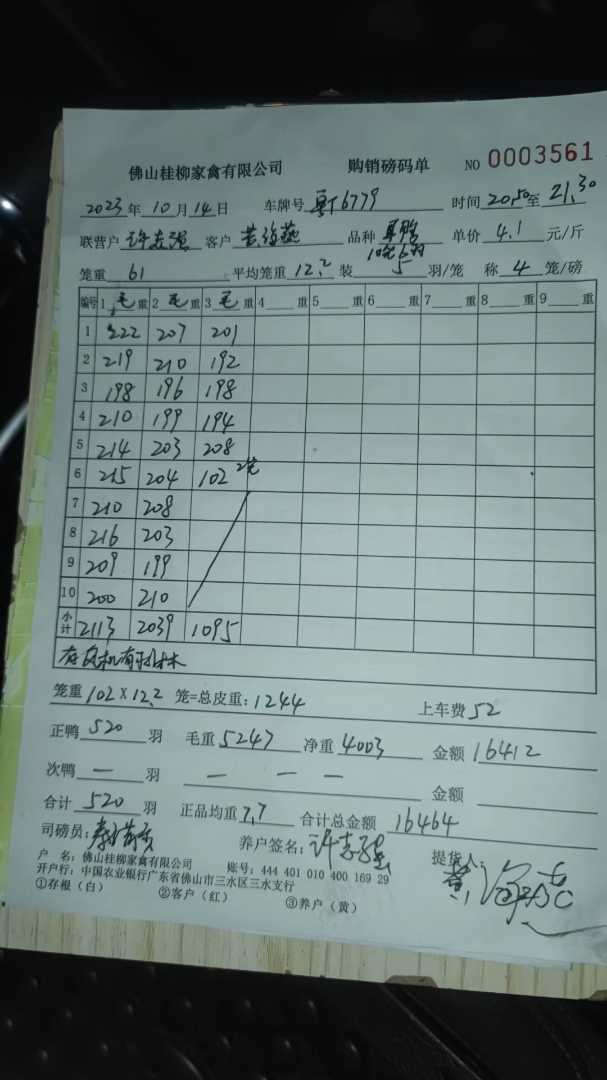 佛山桂柳家禽有限公司 购销磅码单 NO 0003561
2023 年 10 月 14 日 车牌号 粤T6779 时间 20.50 至 21.30
联营户 许志强 客户 品种 单价 4.1 元/斤
10笼6羽
笼重 61 平均笼重 12.2 装 5 羽/笼 称 4 笼/磅
编号 1 毛 重 2 毛 重 3 毛 重 4 重 5 重 6 重 7 重 8 重 9 重
1 222 207 201
2 219 210 192
3 198 196 198
4 210 199 194
5 214 203 208
6 215 204 102 2笼
7 210 208
8 216 203
9 209 199
10 200 210
小计 2113 2039 1095
笼重 102 X 12.2 笼=总皮重: 1244 上车费 52
正鸭 520 羽 毛重 5247 净重 4003 金额 16412
次鸭 — 羽 — — — 金额
合计 520 羽 正品均重 7.7 合计总金额 16464
司磅员: 养户签名: 提货人:
户 名: 佛山桂柳家禽有限公司 账号: 444 401 010 400 169 29
开户行: 中国农业银行广东省佛山市三水区三水支行
①存根（白） ②客户（红） ③养户（黄）